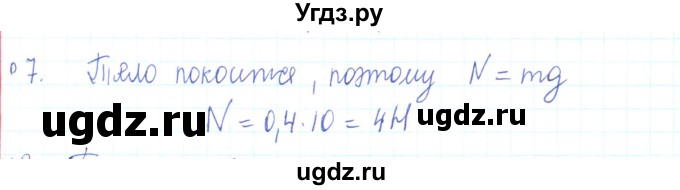 Угдз.ру
7. Тяло покоится, поэтому N = mg
ugdz.ru N = 0,4·10 = 4Н ugdz.ru
ugdz.ru ugdz.ru